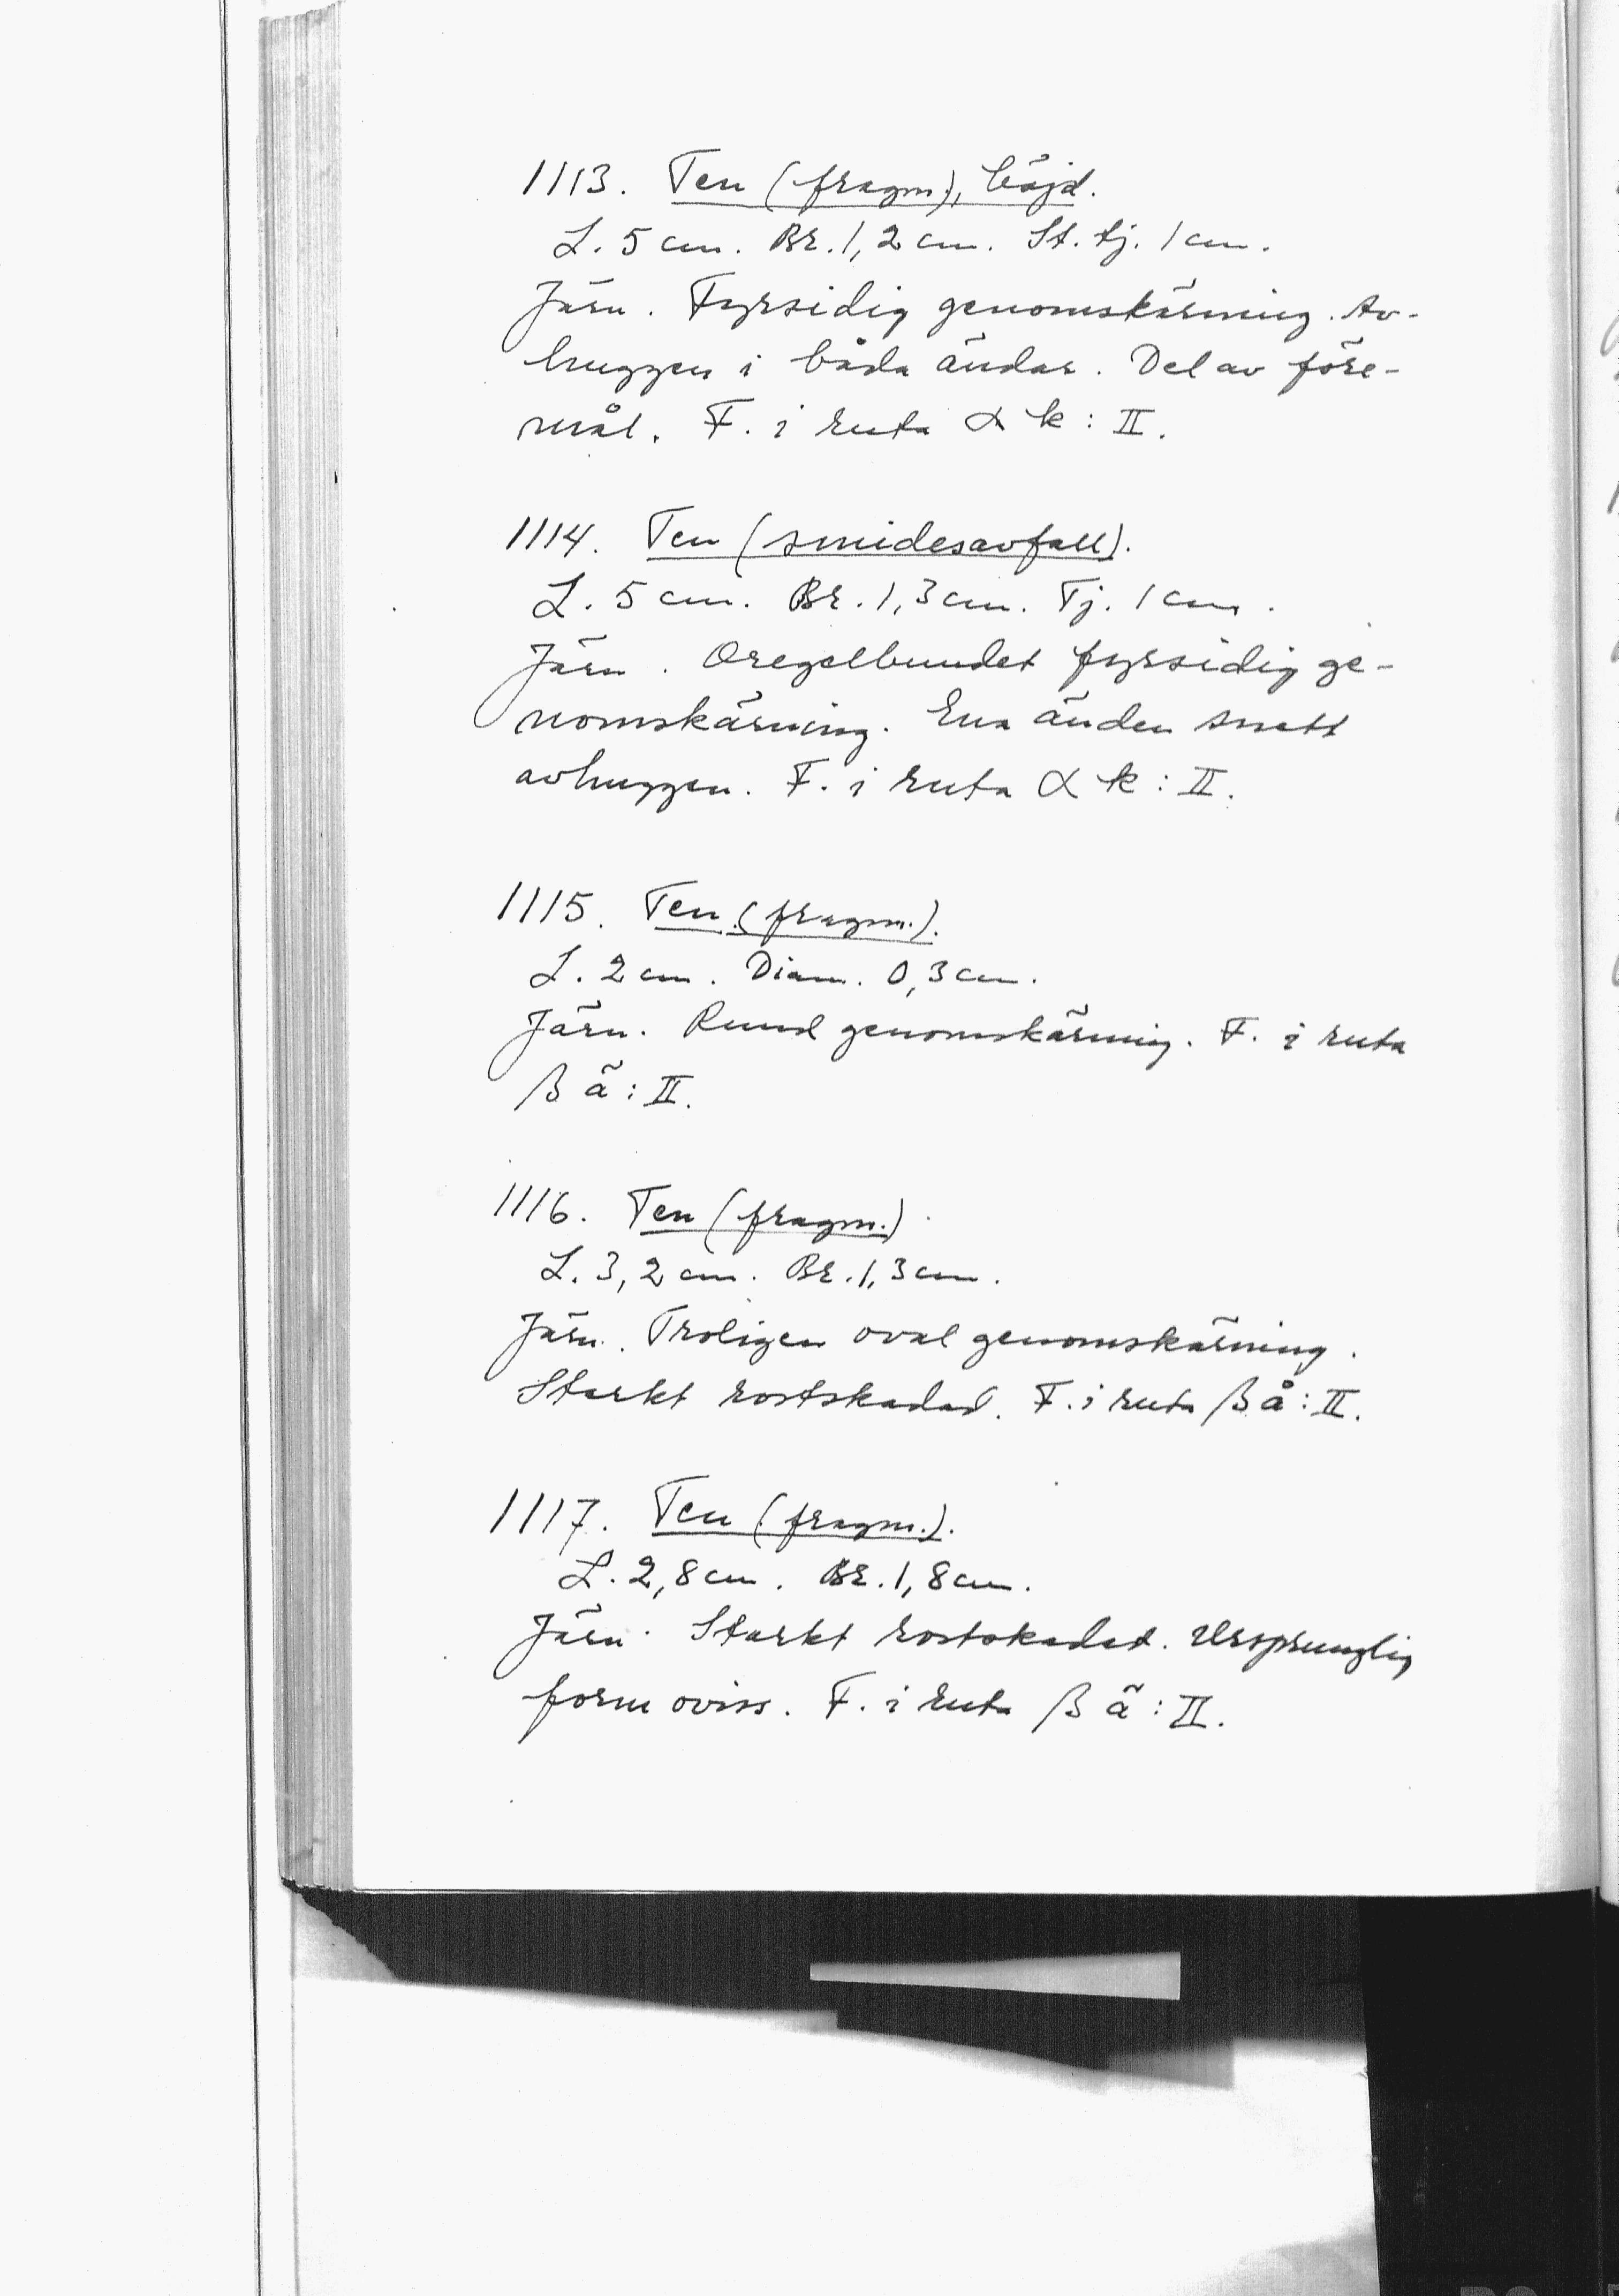 1113. Ten (fragm.), böjd.
L. 5 cm. Br. 1,2 cm. St. tj. 1 cm.
Järn. Fyrsidig genomskärning. Av-
huggen i båda ändar. Del av före-
mål. F. i ruta α k : II.
1114. Ten (smidesavfall).
L. 5 cm. Br. 1,3 cm. Tj. 1 cm.
Järn. Oregelbundet fyrsidig ge-
nomskärning. Ena änden snett
avhuggen. F. i ruta α k : II.
1115. Ten (fragm.).
L. 2 cm. Diam. 0,3 cm.
Järn. Rund genomskärning. F. i ruta
β ä : II.
1116. Ten (fragm.)
L. 3,2 cm. Br. 1,3 cm.
Järn. Troligen oval genomskärning.
Starkt rostskadad. F. i ruta β å : II.
1117. Ten (fragm.).
L. 2,8 cm. Br. 1,8 cm.
Järn. Starkt rostskadat. Ursprunglig
form oviss. F. i ruta β ä : II.